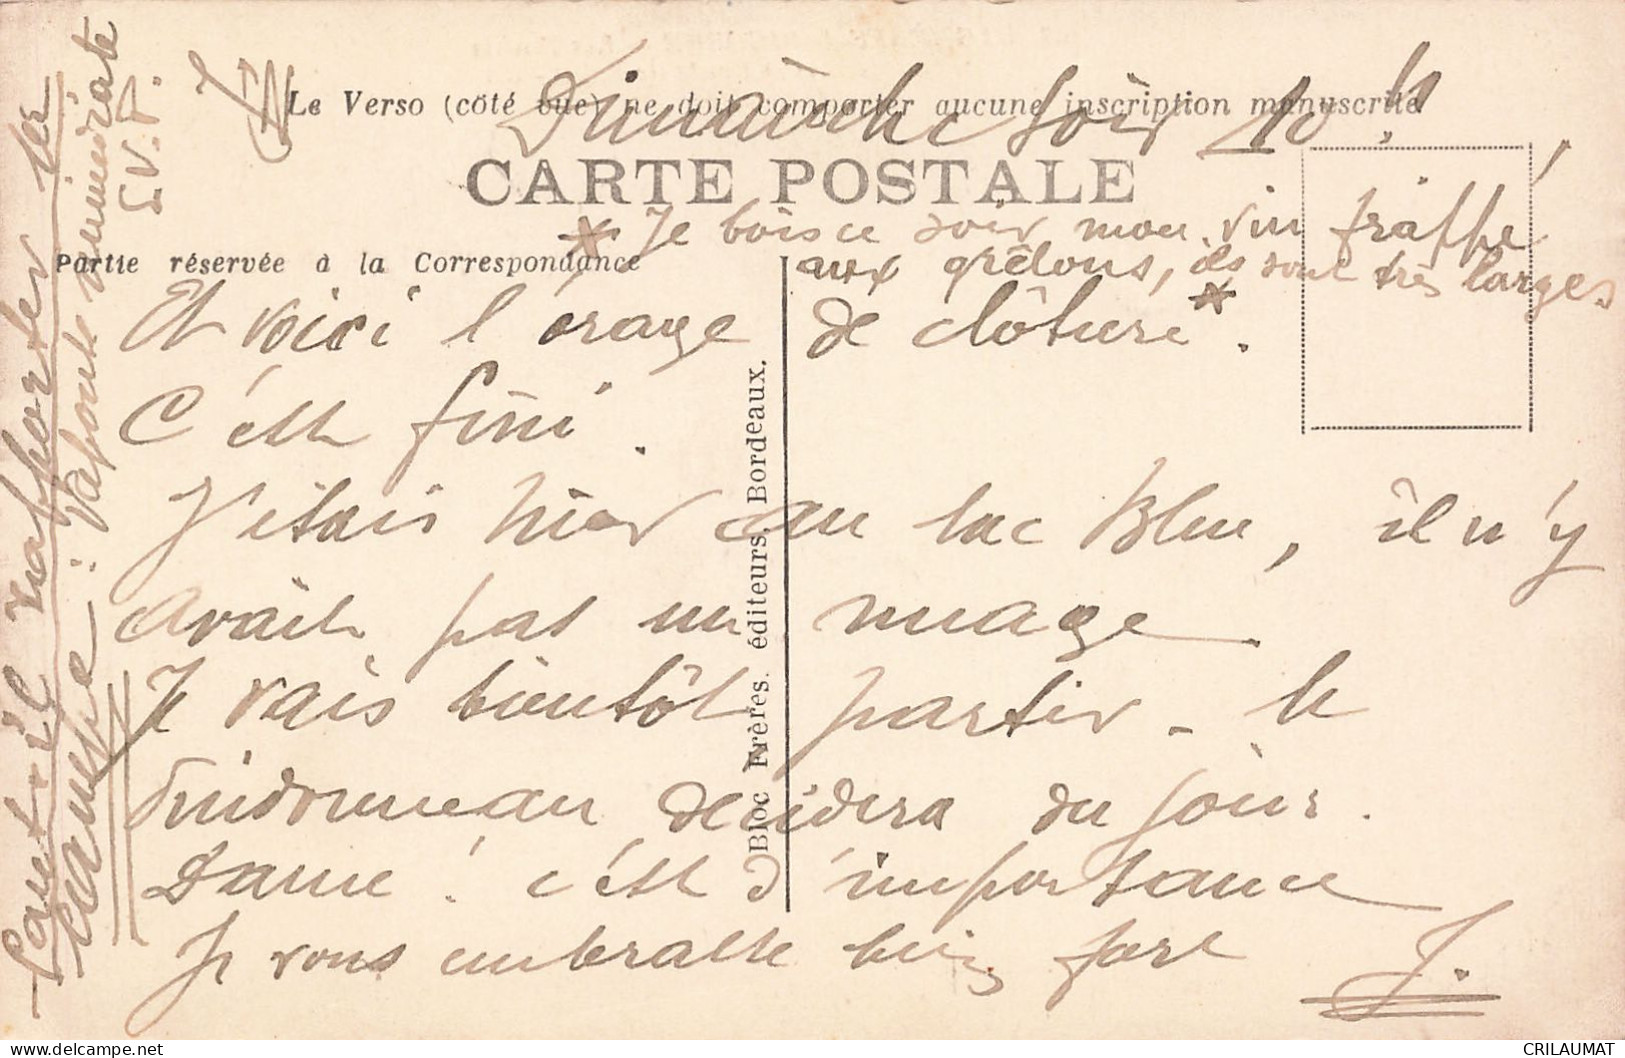 Le Verso (côté vue) ne doit comporter aucune inscription manuscrite
Dimanche soir 10 h
CARTE POSTALE
* Je bois ce soir mon vin frappé
aux grêlons, ils sont très larges
Partie réservée à la Correspondance
Et voici l'orage de clôture*.
C'est fini.
J'étais hier au lac Bleu, il n'y
avait pas un nuage.
Je vais bientôt partir - le
décidera du jour.
Dame ! c'est d'importance
Je vous embrasse bien fort
J.
Faut-il rapporter la
canne : réponse immédiate
S.V.P.
Bloc Frères, éditeurs, Bordeaux.
CRILAUMAT